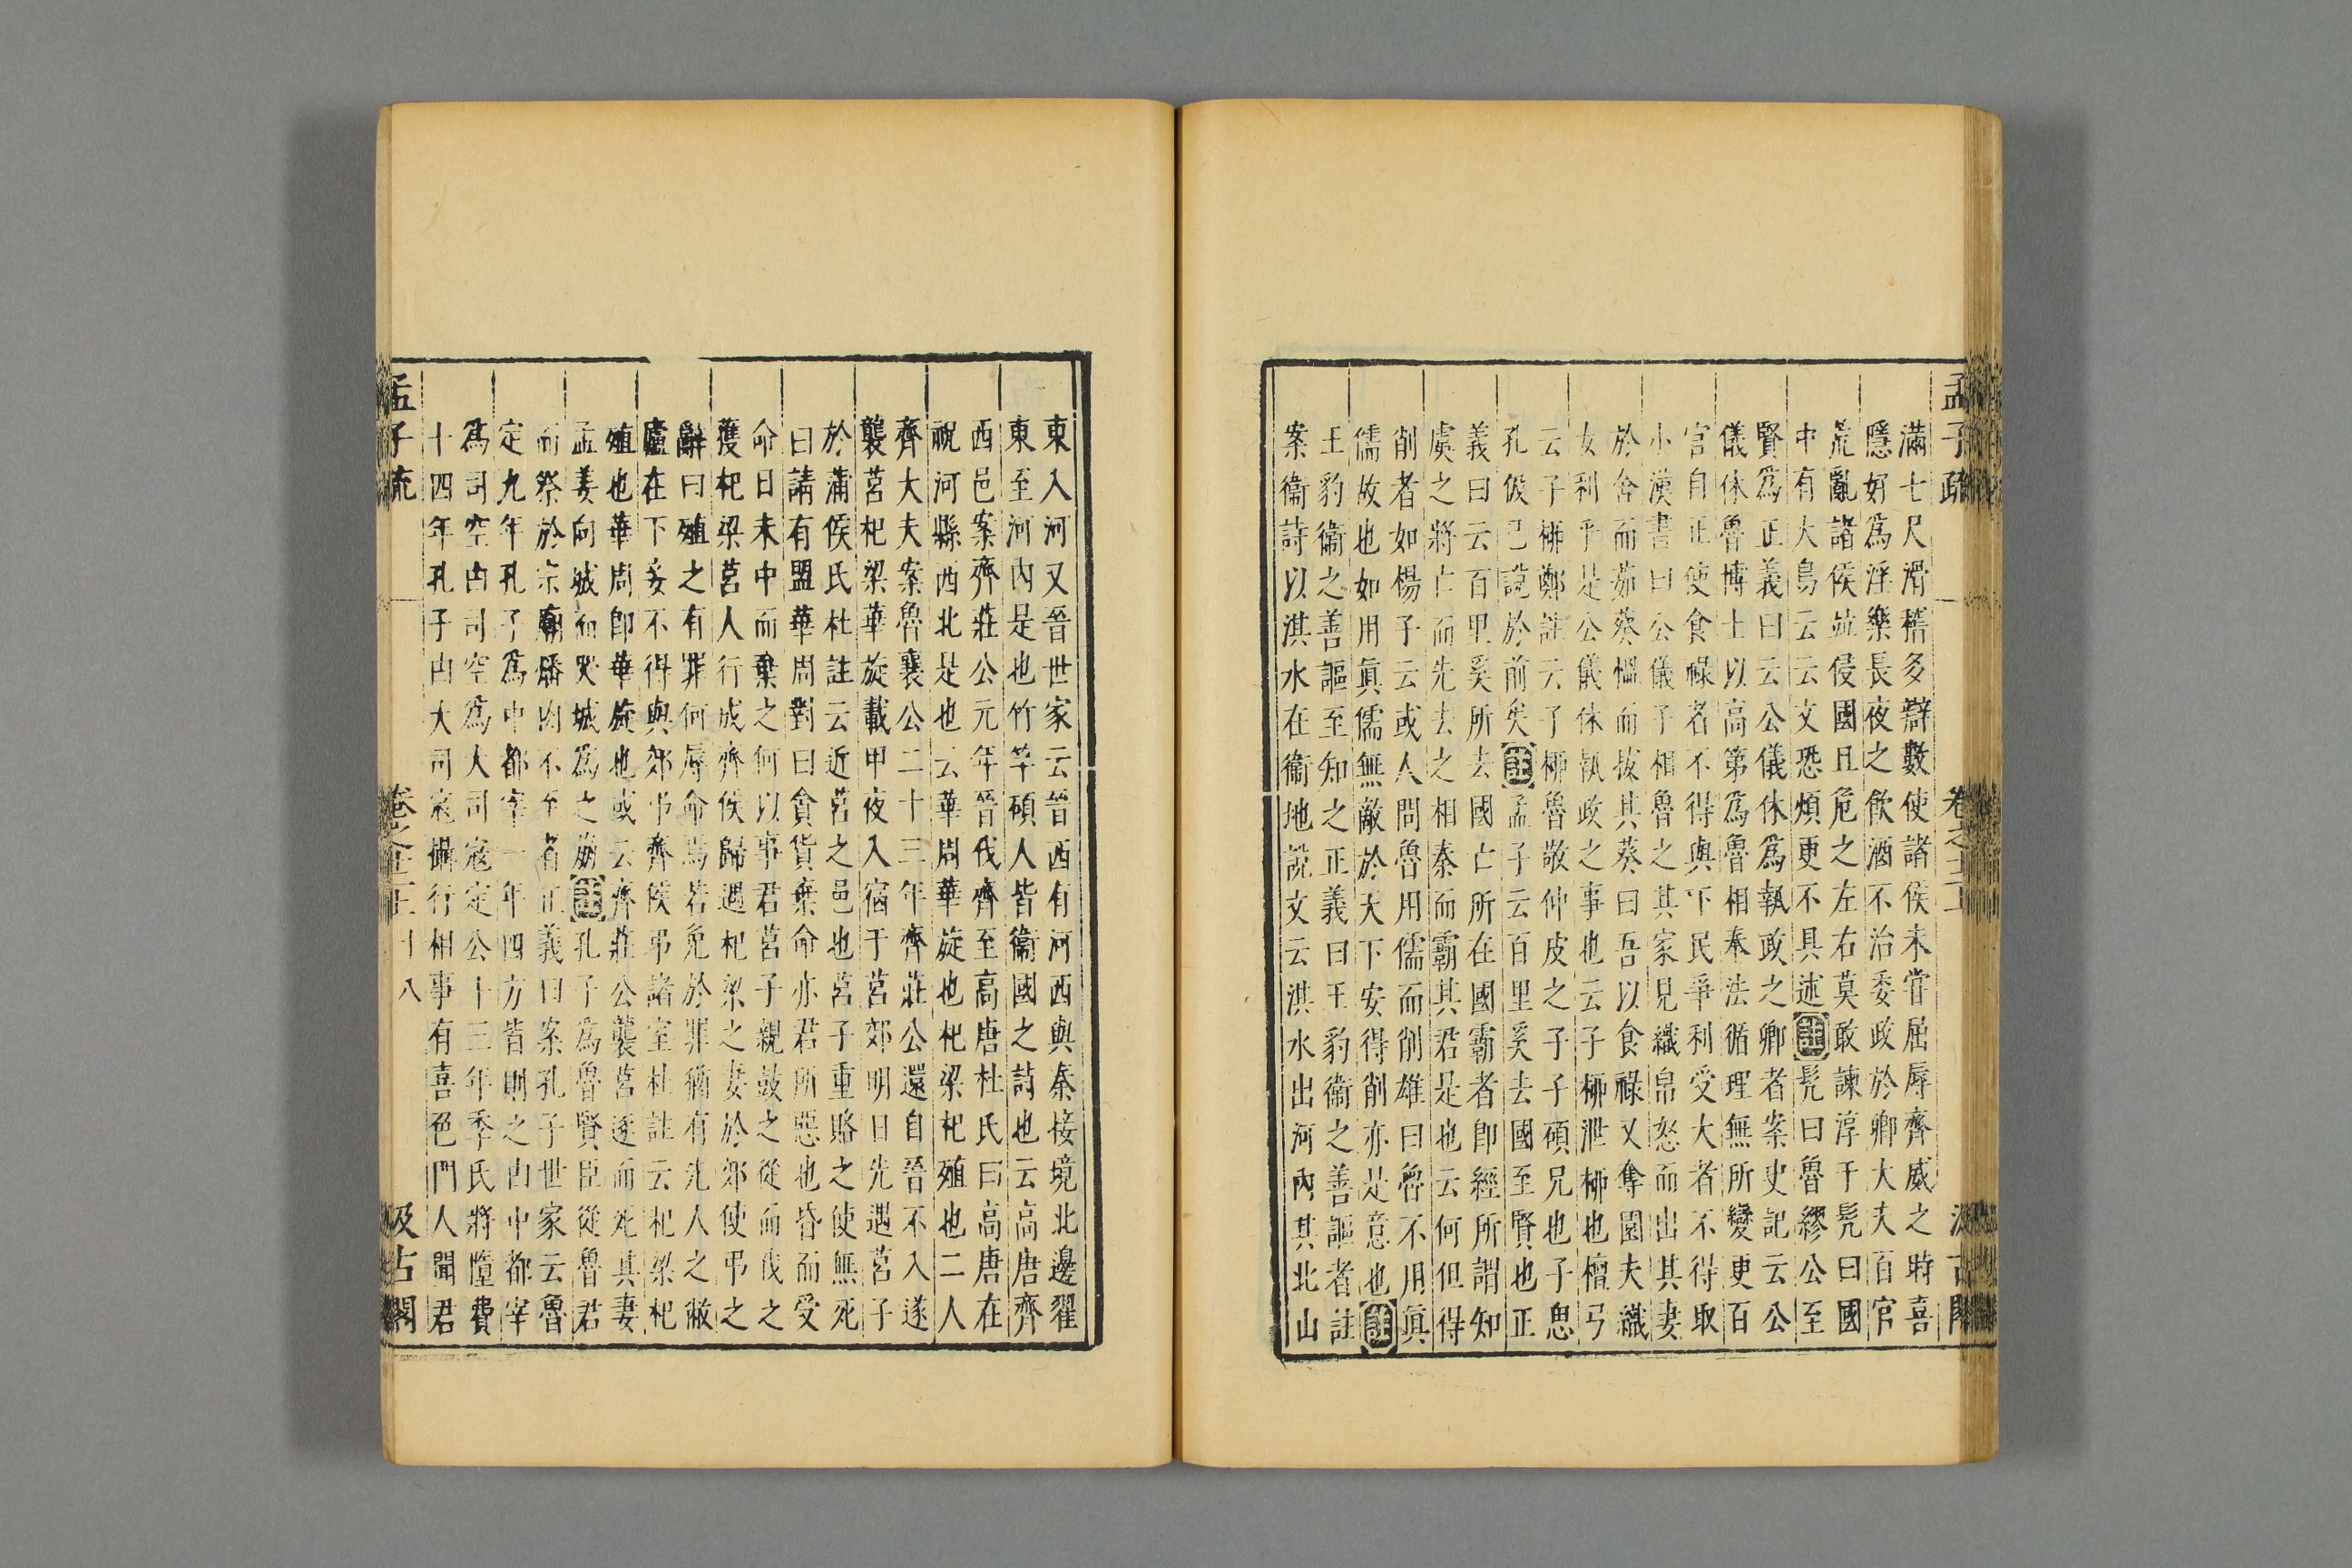 孟子疏 卷之十二上 汲古閣
滿七尺滑稽多辯數使諸侯未嘗屈辱齊威之時喜
隱好爲淫樂長夜之飲酒不治委政於卿大夫百官
荒亂諸侯並侵國且危之左右莫敢諫淳于髡曰國
中有大鳥云云文恐煩更不具述註髡曰魯繆公至
賢爲正義曰云公儀休爲執政之卿者案史記云公
儀休魯博士以高第爲魯相奉法循理無所變更百
官自正使食祿者不得與下民爭利受大者不得取
小漢書曰公儀子相魯之其家見織帛怒而出其妻
於舍而茹葵慍而拔其葵曰吾以食祿又奪園夫織
女利乎是公儀休執政之事也云子柳泄柳也檀弓
云子柳鄭註云子柳魯敬仲皮之子子碩兄也子思
孔伋已說於前矣註孟子云百里奚去國至賢也正
義曰云百里奚所去國亡所在國霸者卽經所謂知
虞之將亡而先去之相秦而霸其君是也云何但得
削者如楊子云或人問魯用儒而削雄曰魯不用眞
儒故也如用眞儒無敵於天下安得削亦是意也註
王豹衞之善謳至知之正義曰王豹衞之善謳者註
案衞詩以淇水在衞地說文云淇水出河內其北山
東入河又晉世家云晉西有河西與秦接境北邊翟
東至河內是也竹竿碩人皆衞國之詩也云高唐齊
西邑案齊莊公元年晉伐齊至高唐杜氏曰高唐在
祝河縣西北是也云華周華旋也杞梁杞殖也二人
齊大夫案魯襄公二十三年齊莊公還自晉不入遂
襲莒杞梁華旋載甲夜入宿于莒郊明日先遇莒子
於蒲侯氏杜註云近莒之邑也莒子重賂之使無死
曰請有盟華周對曰貪貨棄命亦君所惡也昏而受
命日未中而棄之何以事君莒子親鼓之從而伐之
獲杞梁莒人行成齊侯歸遇杞梁之妻於郊使弔之
辭曰殖之有罪何辱命焉若免於罪猶有先人之敝
廬在下妾不得與郊弔齊侯弔諸室杜註云杞梁杞
殖也華周卽華旋也或云齊莊公襲莒逐而死其妻
孟姜向城而哭城爲之崩註孔子爲魯賢臣從魯君
而祭於宗廟膰肉不至者正義曰案孔子世家云魯
定九年孔子爲中都宰一年四方皆則之由中都宰
爲司空由司空爲大司寇定公十三年季氏將墮費
十四年孔子由大司寇攝行相事有喜色門人聞君
孟子疏 卷之十二上 十八 汲古閣